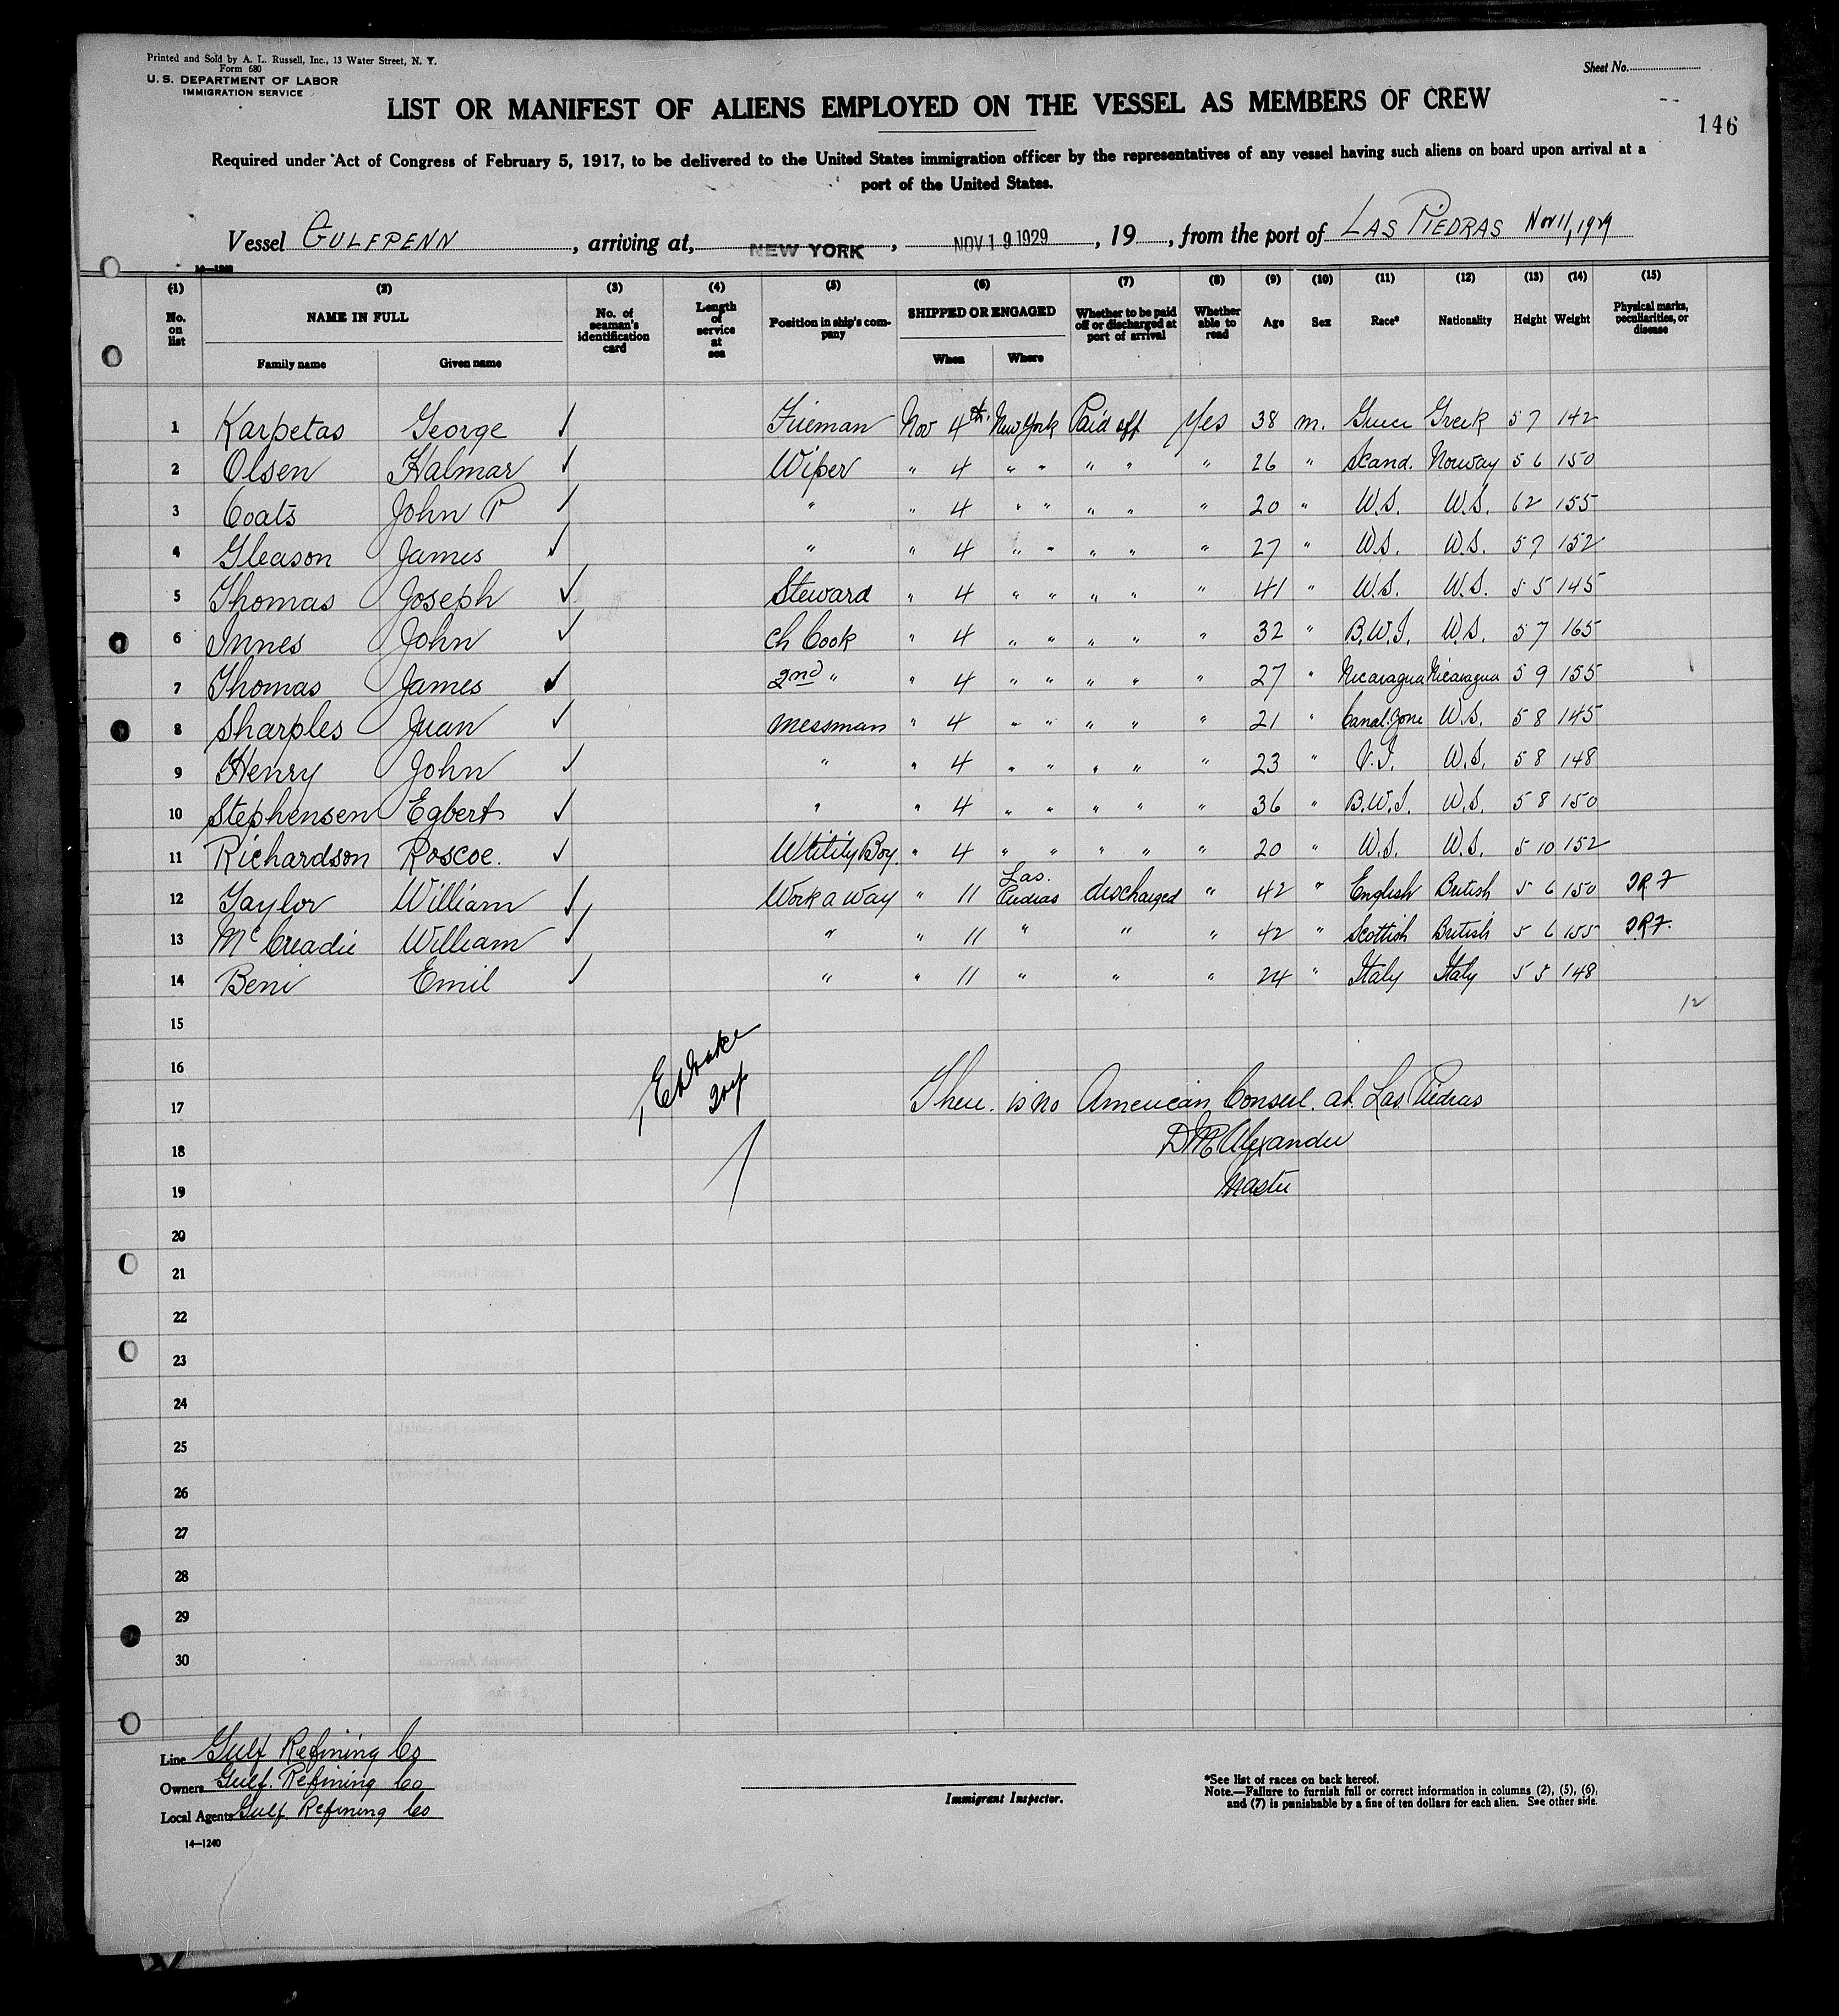 Printed and Sold by A. L. Russell, Inc., 13 Water Street, N. Y.
Form 680
U. S. DEPARTMENT OF LABOR
IMMIGRATION SERVICE
Sheet No.
LIST OR MANIFEST OF ALIENS EMPLOYED ON THE VESSEL AS MEMBERS OF CREW
146
Required under Act of Congress of February 5, 1917, to be delivered to the United States immigration officer by the representatives of any vessel having such aliens on board upon arrival at a
port of the United States.
Vessel GULFPENN, arriving at, NEW YORK, NOV 19 1929, 19, from the port of LAS PIEDRAS Nov 11, 1929
(1) (2) (3) (4) (5) (6) (7) (8) (9) (10) (11) (12) (13) (14) (15)
No. on list NAME IN FULL No. of seaman's identification card Length of service at sea Position in ship's company SHIPPED OR ENGAGED Whether to be paid off or discharged at port of arrival Whether able to read Age Sex Race* Nationality Height Weight Physical marks, peculiarities, or disease
Family name Given name When Where
1 Karpetas George ✓ Fireman Nov 4th New York Paid off Yes 38 m. Greece Greek 5 7 142
2 Olsen Halmar ✓ Wiper " 4 " " " " " 26 " Scand. Norway 5 6 150
3 Coats John P ✓ " " 4 " " " " " 20 " U.S. U.S. 6 2 155
4 Gleason James ✓ " " 4 " " " " " 27 " U.S. U.S. 5 7 152
5 Thomas Joseph ✓ Steward " 4 " " " " " 41 " U.S. U.S. 5 5 145
6 Innes John ✓ Ch Cook " 4 " " " " " 32 " B.W.I. U.S. 5 7 165
7 Thomas James ✓ 2nd " " 4 " " " " " 27 " Nicaragua Nicaragua 5 9 155
8 Sharples Juan ✓ Messman " 4 " " " " " 21 " Canal Zone U.S. 5 8 145
9 Henry John ✓ " " 4 " " " " " 23 " V.I. U.S. 5 8 148
10 Stephensen Egbert ✓ " " 4 " " " " " 36 " B.W.I. U.S. 5 8 150
11 Richardson Roscoe. ✓ Utility Boy. " 4 " " " " " 20 " U.S. U.S. 5 10 152
12 Taylor William ✓ Work a way " 11 Las. Piedras discharged " 42 " English British 5 6 150
13 McCreadie William ✓ " " 11 " " " 42 " Scottish British 5 6 155
14 Beni Emil ✓ " " 11 " " " 24 " Italy Italy 5 5 148
12
15
16
17 There is no American Consul. at. Las. Piedras
18 D M Alexander
19 Master
20
21
22
23
24
25
26
27
28
29
30
Line Gulf Refining Co
Owners Gulf. Refining Co
Local Agents Gulf Refining Co
14—1240
Immigrant Inspector.
*See list of races on back hereof.
Note.—Failure to furnish full or correct information in columns (2), (5), (6),
and (7) is punishable by a fine of ten dollars for each alien. See other side.